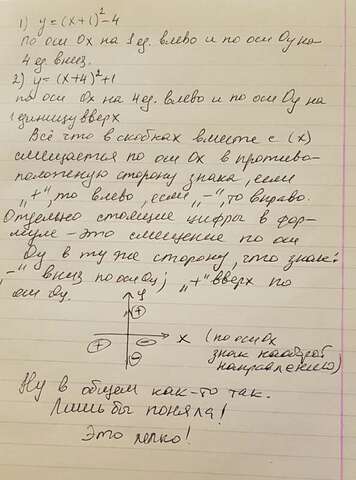 1) y = (x+1)² - 4
По оси Ox на 1 ед. влево и по оси Oy на
4 ед. вниз.
2) y = (x+4)² + 1
по оси Ox на 4 ед. влево и по оси Oy на
1 единицу вверх
Всё что в скобках вместе с (x)
смещается по оси Ox в противо-
положную сторону знака, если
„+", то влево, если „-", то вправо.
Отдельно стоящие цифры в фор-
муле - это смещение по оси
Oy в ту же сторону, что знак:
„-" вниз по оси Oy; „+" вверх по
оси Oy.
y
+
+ - x (по оси Ox
- знак наоборот
направлению)
Ну в общем как-то так.
Лишь бы поняла!
Это легко!